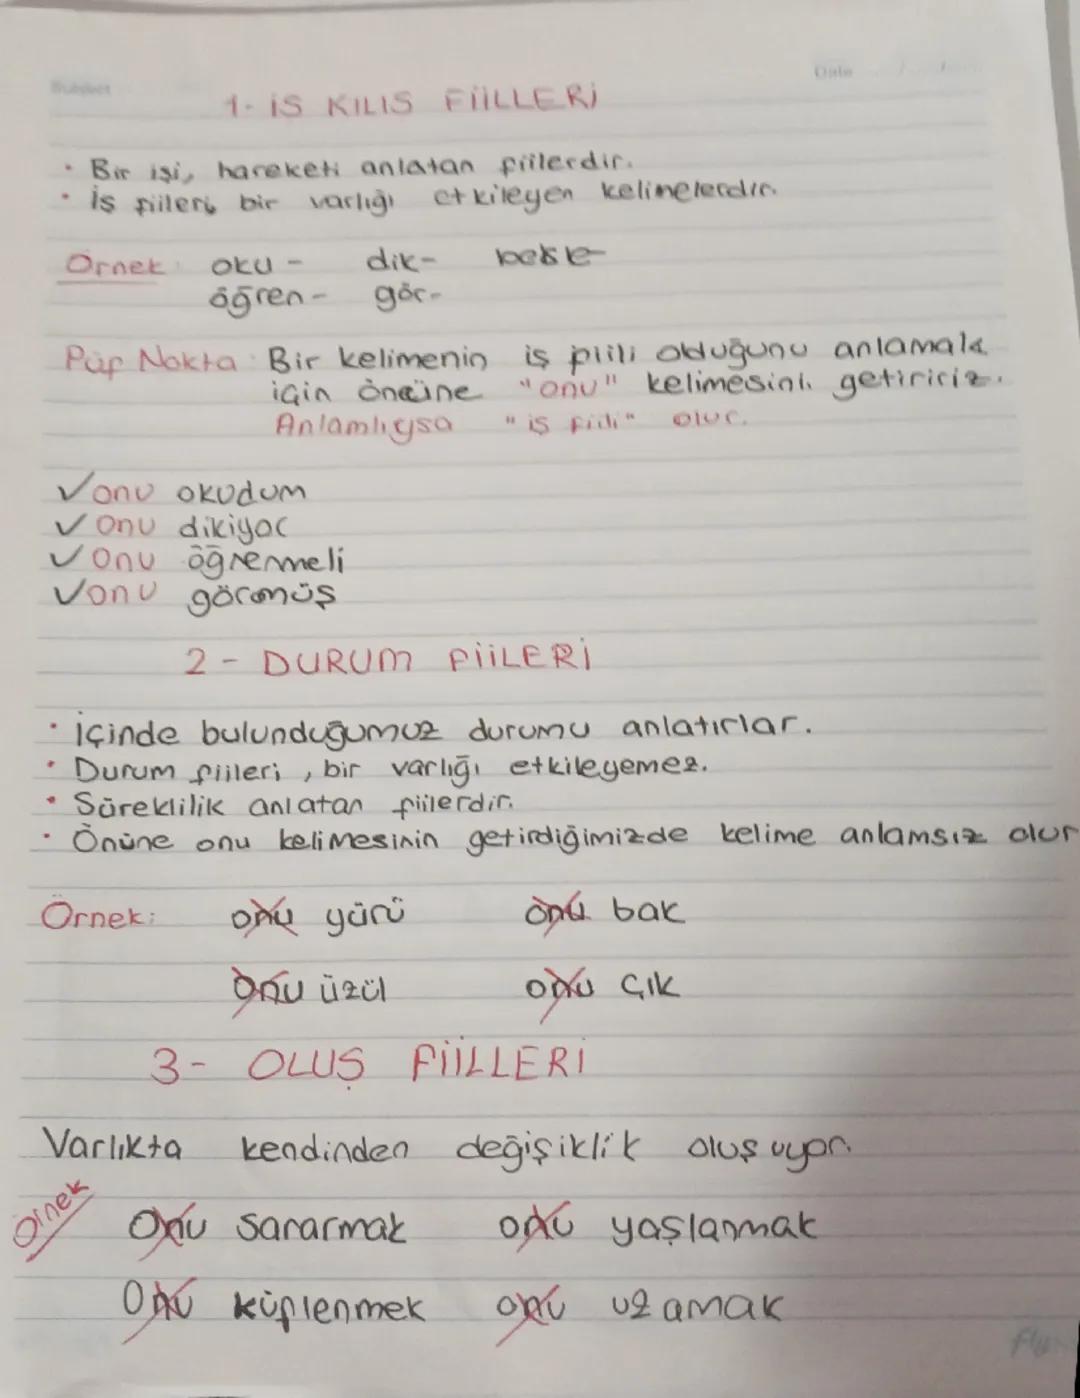 Subject
Date
1- İŞ KILIS FİİLLERİ
• Bir işi, hareketi anlatan fiilerdir.
• İş fiileri, bir varlığı etkileyen kelimelerdir.
Örnek: oku - dik- besle-
öğren - gör-
Püf Nokta: Bir kelimenin iş fiili olduğunu anlamak
için önüne "onu" kelimesini getiririz.
Anlamlıysa "iş fiili" olur.
✓ onu okudum
✓ onu dikiyor
✓ onu öğrenmeli
✓ onu görmüş
2 - DURUM FİİLERİ
• İçinde bulunduğumuz durumu anlatırlar.
• Durum fiileri, bir varlığı etkileyemez.
• Süreklilik anlatan fiilerdir.
• Önüne onu kelimesinin getirdiğimizde kelime anlamsız olur
Örnek: onu yürü onu bak
onu üzül onu çık
3- OLUŞ FİİLLERİ
Varlıkta kendinden değişiklik oluşuyor.
Örnek onu sararmak onu yaşlanmak
onu küflenmek onu uzamak